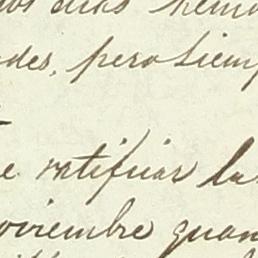 dias hemo
des, pero siemp
e ratificar la
oviembre quan